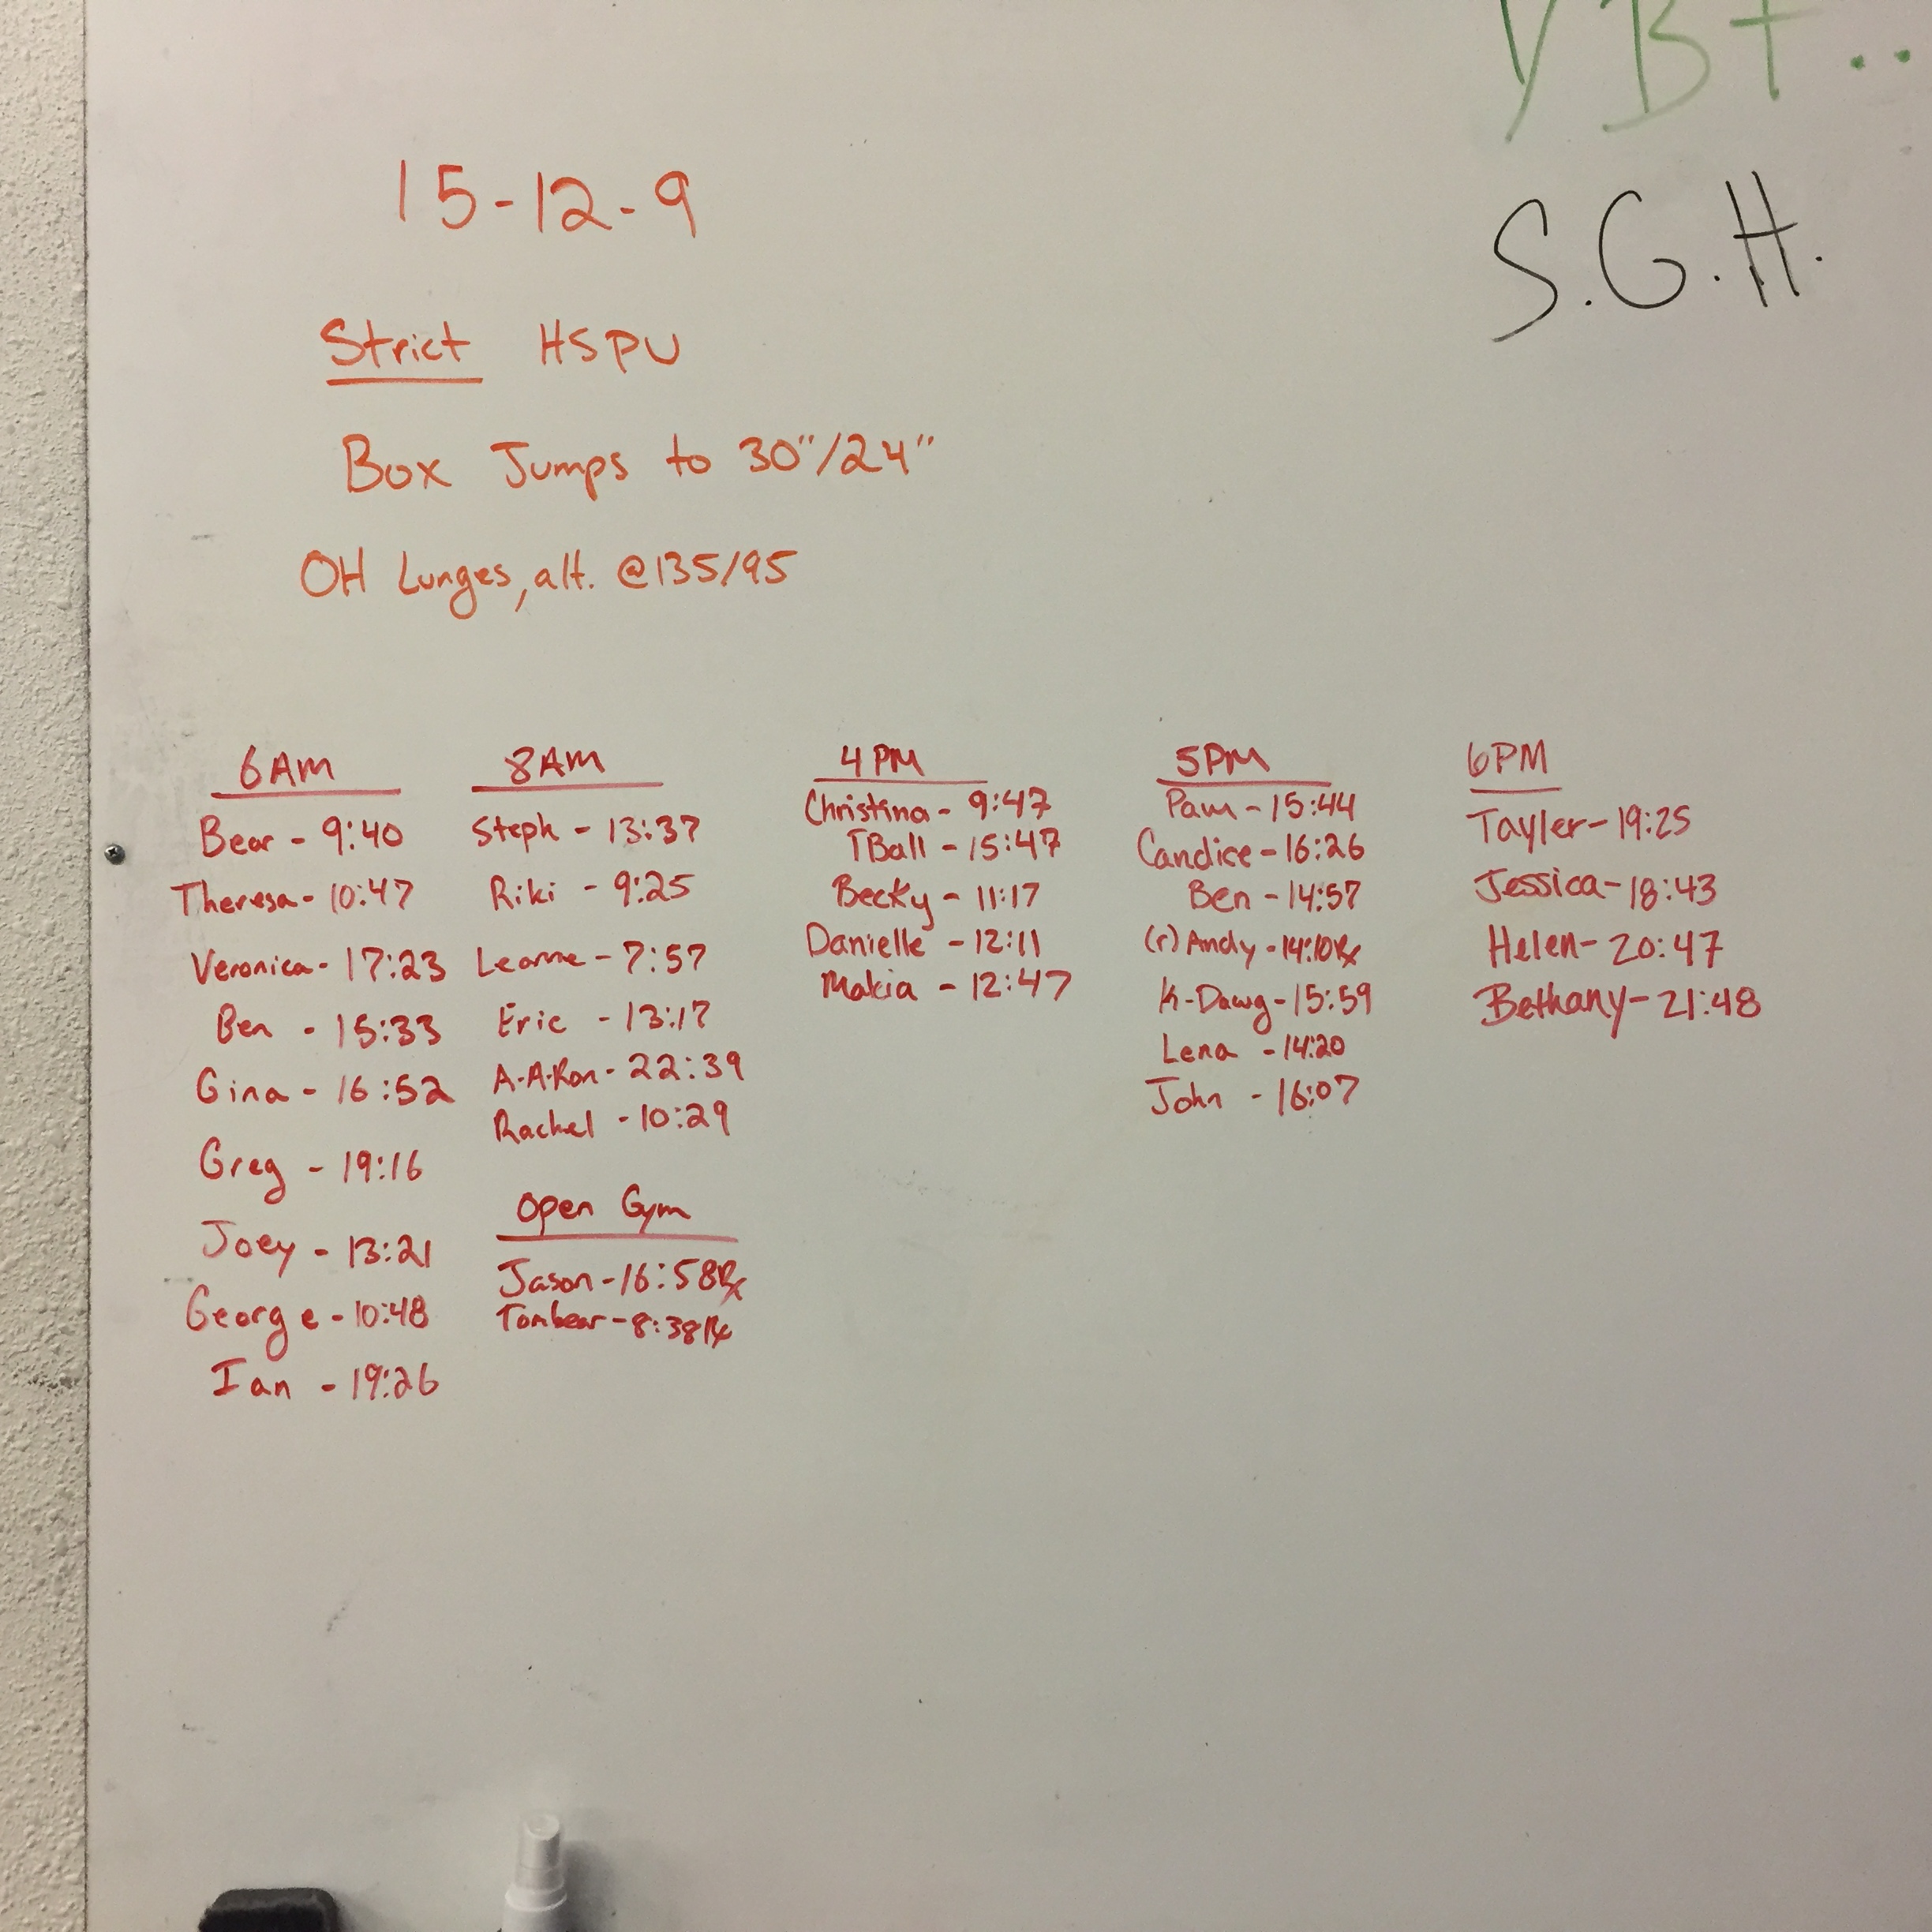 VB+..
S.G.H.
15-12-9
Strict HSPU
Box Jumps to 30"/24"
OH Lunges, alt. @135/95
6AM
Bear - 9:40
Theresa - 10:47
Veronica - 17:23
Ben - 15:33
Gina - 16:52
Greg - 19:16
Joey - 13:21
George - 10:48
Ian - 19:26
8AM
Steph - 13:37
Riki - 9:25
Leanne - 7:57
Eric - 13:17
A-A-Ron - 22:39
Rachel - 10:29
Open Gym
Jason - 16:58 Rx
Tombear - 8:38 Rx
4PM
Christina - 9:47
TBall - 15:47
Becky - 11:17
Danielle - 12:11
Makia - 12:47
5PM
Pam - 15:44
Candice - 16:26
Ben - 14:57
(r) Andy - 14:10 Rx
K-Dawg - 15:59
Lena - 14:20
John - 16:07
6PM
Tayler - 19:25
Jessica - 18:43
Helen - 20:47
Bethany - 21:48